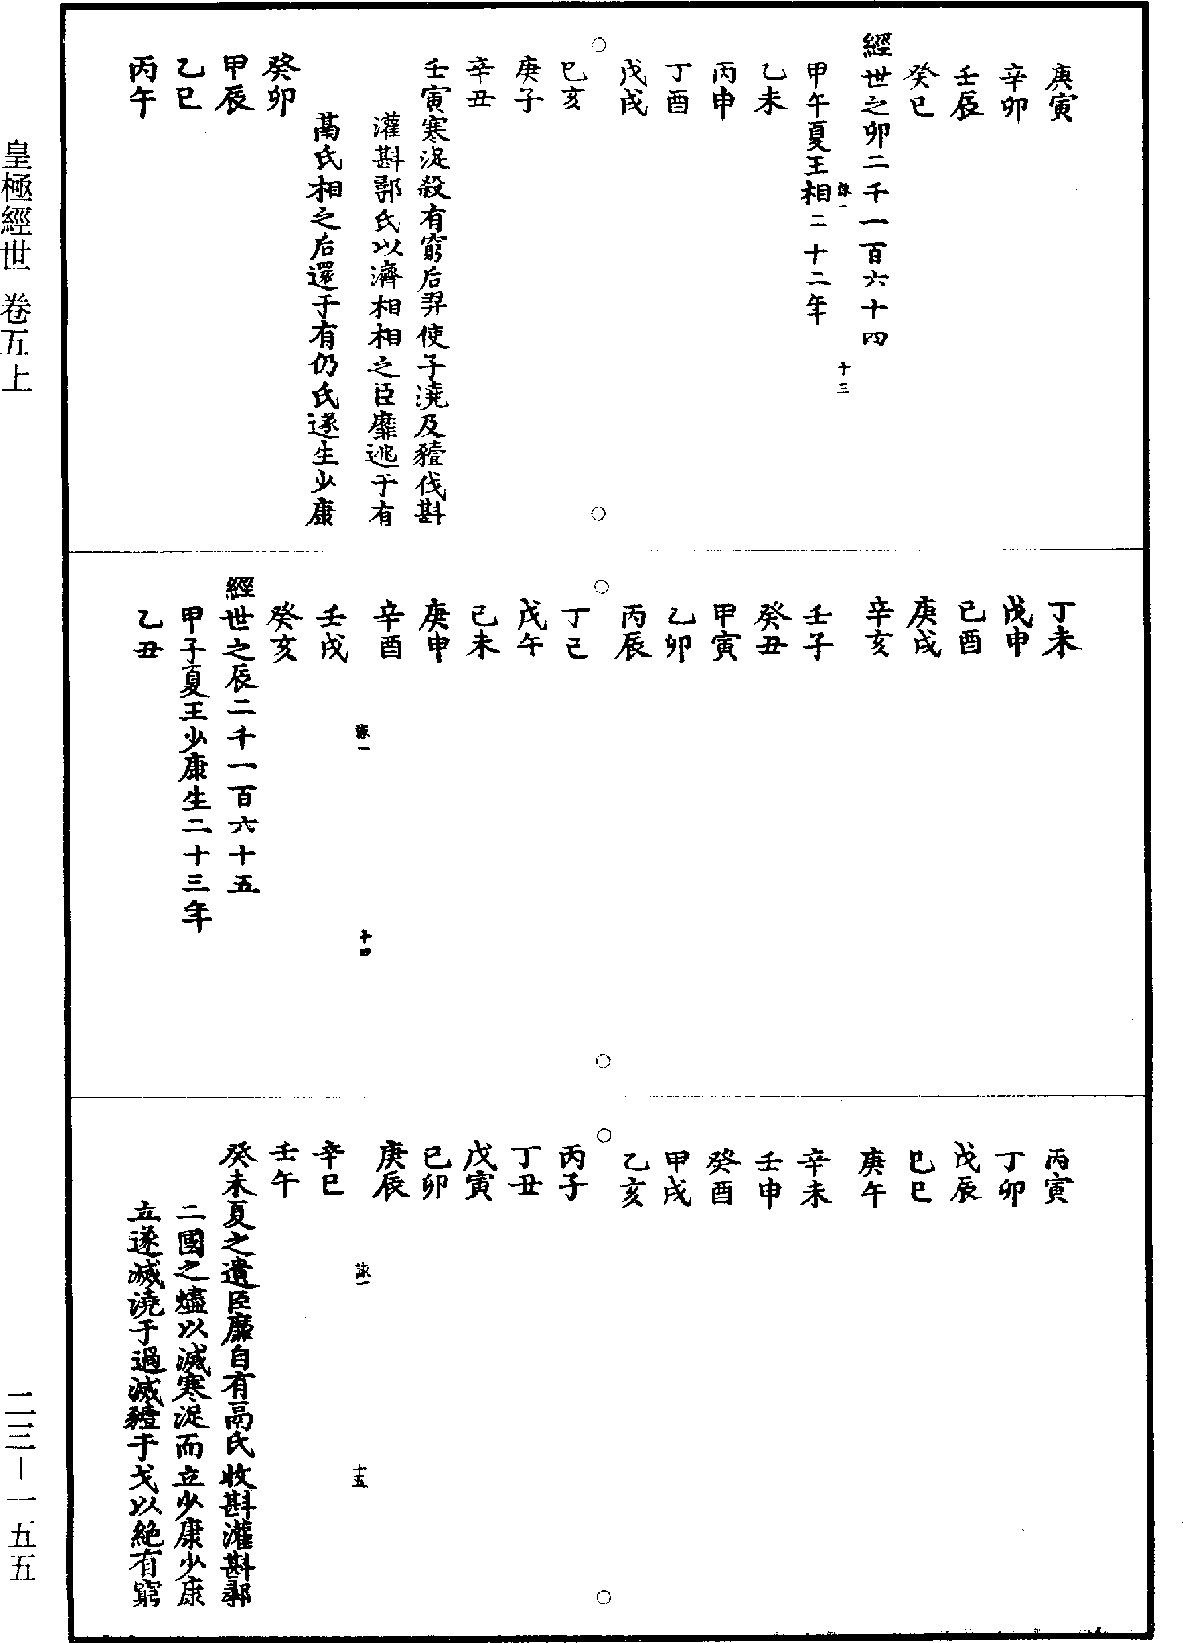 庚寅
辛卯
壬辰
癸巳
經世之卯二千一百六十四
詠一
十三
甲午夏王相二十二年
乙未
丙申
丁酉
戊戌
○
○
己亥
庚子
辛丑
壬寅寒浞殺有窮后羿使子澆及豷伐斟
灌斟鄩氏以濟相相之臣靡逃于有
鬲氏相之后還于有仍氏遂生少康
癸卯
甲辰
乙巳
丙午
丁未
戊申
己酉
庚戌
辛亥
壬子
癸丑
甲寅
乙卯
丙辰
○
○
丁巳
戊午
己未
庚申
辛酉
詠一
十四
壬戌
癸亥
經世之辰二千一百六十五
甲子夏王少康生二十三年
乙丑
丙寅
丁卯
戊辰
己巳
庚午
辛未
壬申
癸酉
甲戌
乙亥
○
○
丙子
丁丑
戊寅
己卯
庚辰
詠一
十五
辛巳
壬午
癸未夏之遺臣靡自有鬲氏收斟灌斟鄩
二國之燼以滅寒浞而立少康少康
立遂滅澆于過滅豷于戈以絕有窮
皇極經世 卷五上
二三－一五五